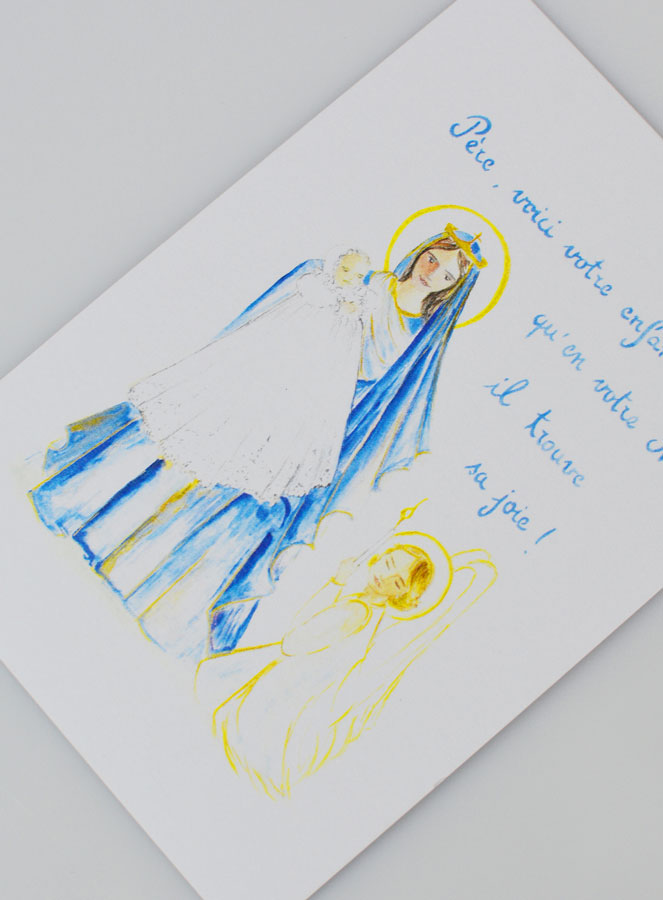 Père, voici votre enfan
qu'en votre
il trouve
sa joie !